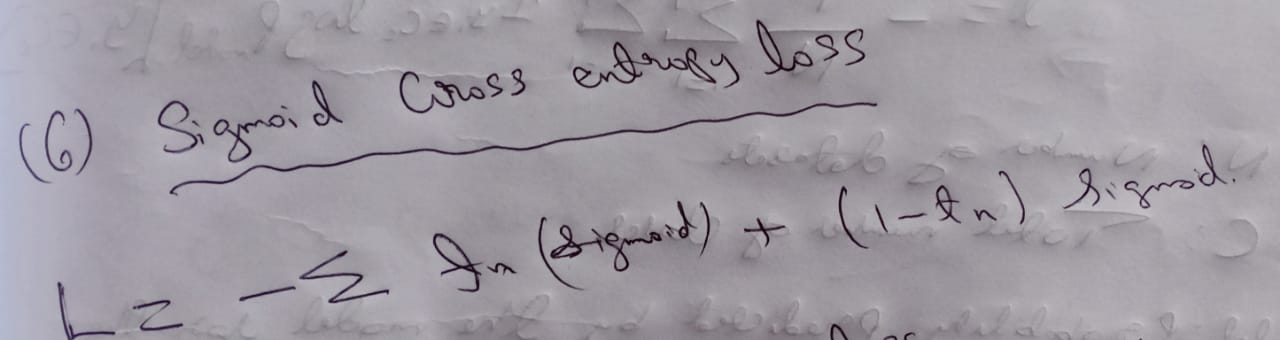 (6) Sigmoid Cross entropy loss
L = -Σ tn (sigmoid) + (1-tn) sigmod.